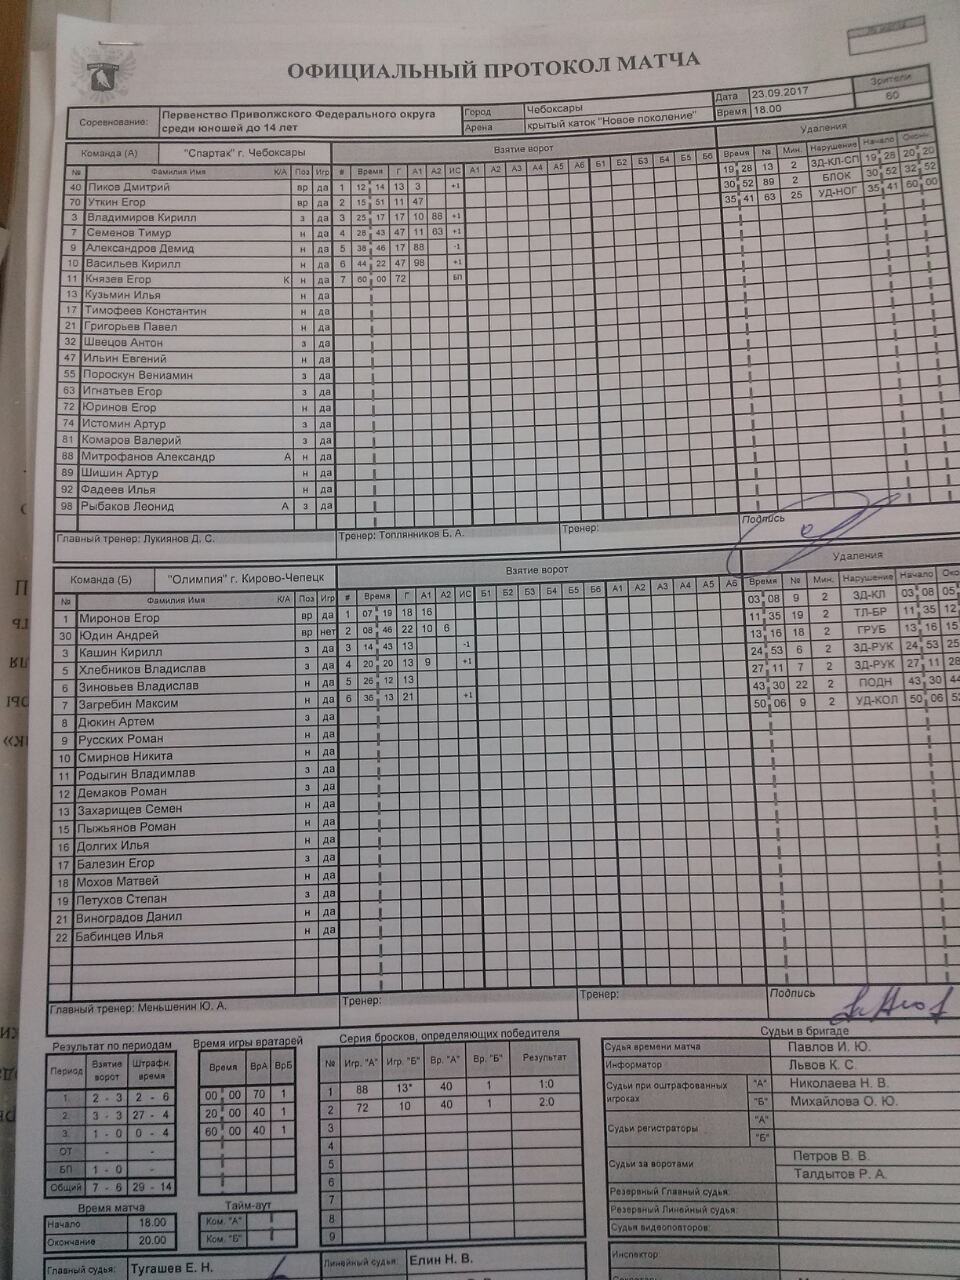 ОФИЦИАЛЬНЫЙ ПРОТОКОЛ МАТЧА
Соревнование: Первенство Приволжского Федерального округа среди юношей до 14 лет
Город Чебоксары
Арена крытый каток "Новое поколение"
Дата 23.09.2017
Время 18.00
Зрители 60
Команда (А) "Спартак" г. Чебоксары Взятие ворот Удаления
№ Фамилия Имя К/А Поз Игр # Время Г А1 А2 ИС А1 А2 А3 А4 А5 А6 Б1 Б2 Б3 Б4 Б5 Б6 Время № Мин. Нарушение Начало Оконч.
40 Пиков Дмитрий вр да 1 12 14 13 3 +1 19 28 13 2 ЗД-КЛ-СП 19 28 20 20
70 Уткин Егор вр да 2 15 51 11 47 30 52 89 2 БЛОК 30 52 32 52
3 Владимиров Кирилл з да 3 25 17 17 10 88 +1 35 41 63 25 УД-НОГ 35 41 60 00
7 Семенов Тимур н да 4 28 43 47 11 63 +1
9 Александров Демид н да 5 38 46 17 88 -1
10 Васильев Кирилл н да 6 44 22 47 98 +1
11 Князев Егор К н да 7 60 00 72 БП
13 Кузьмин Илья н да
17 Тимофеев Константин н да
21 Григорьев Павел н да
32 Швецов Антон з да
47 Ильин Евгений н да
55 Пороскун Вениамин з да
63 Игнатьев Егор з да
72 Юринов Егор н да
74 Истомин Артур з да
81 Комаров Валерий з да
88 Митрофанов Александр А н да
89 Шишин Артур н да
92 Фадеев Илья н да
98 Рыбаков Леонид А з да
Главный тренер: Лукиянов Д. С. Тренер: Топлянников Б. А. Тренер: Подпись
Команда (Б) "Олимпия" г. Кирово-Чепецк Взятие ворот Удаления
№ Фамилия Имя К/А Поз Игр # Время Г А1 А2 ИС Б1 Б2 Б3 Б4 Б5 Б6 А1 А2 А3 А4 А5 А6 Время № Мин. Нарушение Начало Око
1 Миронов Егор вр да 1 07 19 18 16 03 08 9 2 ЗД-КЛ 03 08 05
30 Юдин Андрей вр нет 2 08 46 22 10 6 11 35 19 2 ТЛ-БР 11 35 12
3 Кашин Кирилл з да 3 14 43 13 -1 13 16 18 2 ГРУБ 13 16 15
5 Хлебников Владислав з да 4 20 20 13 9 +1 24 53 6 2 ЗД-РУК 24 53 25
6 Зиновьев Владислав н да 5 26 12 13 27 11 7 2 ЗД-РУК 27 11 28
7 Загребин Максим н да 6 36 13 21 +1 43 30 22 2 ПОДН 43 30 44
8 Дюкин Артем з да 50 06 9 2 УД-КОЛ 50 06 52
9 Русских Роман н да
10 Смирнов Никита н да
11 Родыгин Владимлав з да
12 Демаков Роман з да
13 Захарищев Семен н да
15 Пыжьянов Роман н да
16 Долгих Илья н да
17 Балезин Егор з да
18 Мохов Матвей н да
19 Петухов Степан з да
21 Виноградов Данил н да
22 Бабинцев Илья н да
Главный тренер: Меньшенин Ю. А. Тренер: Тренер: Подпись
Результат по периодам
Период Взятие ворот Штрафн. время
1. 2 - 3 2 - 6
2. 3 - 3 27 - 4
3. 1 - 0 0 - 4
ОТ - -
БП 1 - 0 -
Общий 7 - 6 29 - 14
Время матча
Начало 18.00
Окончание 20.00
Время игры вратарей
Время ВрА ВрБ
00 00 70 1
20 00 40 1
60 00 40 1
Тайм-аут
Ком. "А"
Ком. "Б"
Серия бросков, определяющих победителя
№ Игр. "А" Игр. "Б" Вр. "А" Вр. "Б" Результат
1 88 13* 40 1 1:0
2 72 10 40 1 2:0
3
4
5
6
7
8
9
Судьи в бригаде
Судья времени матча Павлов И. Ю.
Информатор Львов К. С.
Судьи при оштрафованных игроках "А" Николаева Н. В.
"Б" Михайлова О. Ю.
Судьи регистраторы "А"
"Б"
Судьи за воротами Петров В. В.
Талдытов Р. А.
Резервный Главный судья:
Резервный Линейный судья:
Судья видеоповторов:
Главный судья: Тугашев Е. Н. Линейный судья: Елин Н. В. Инспектор: